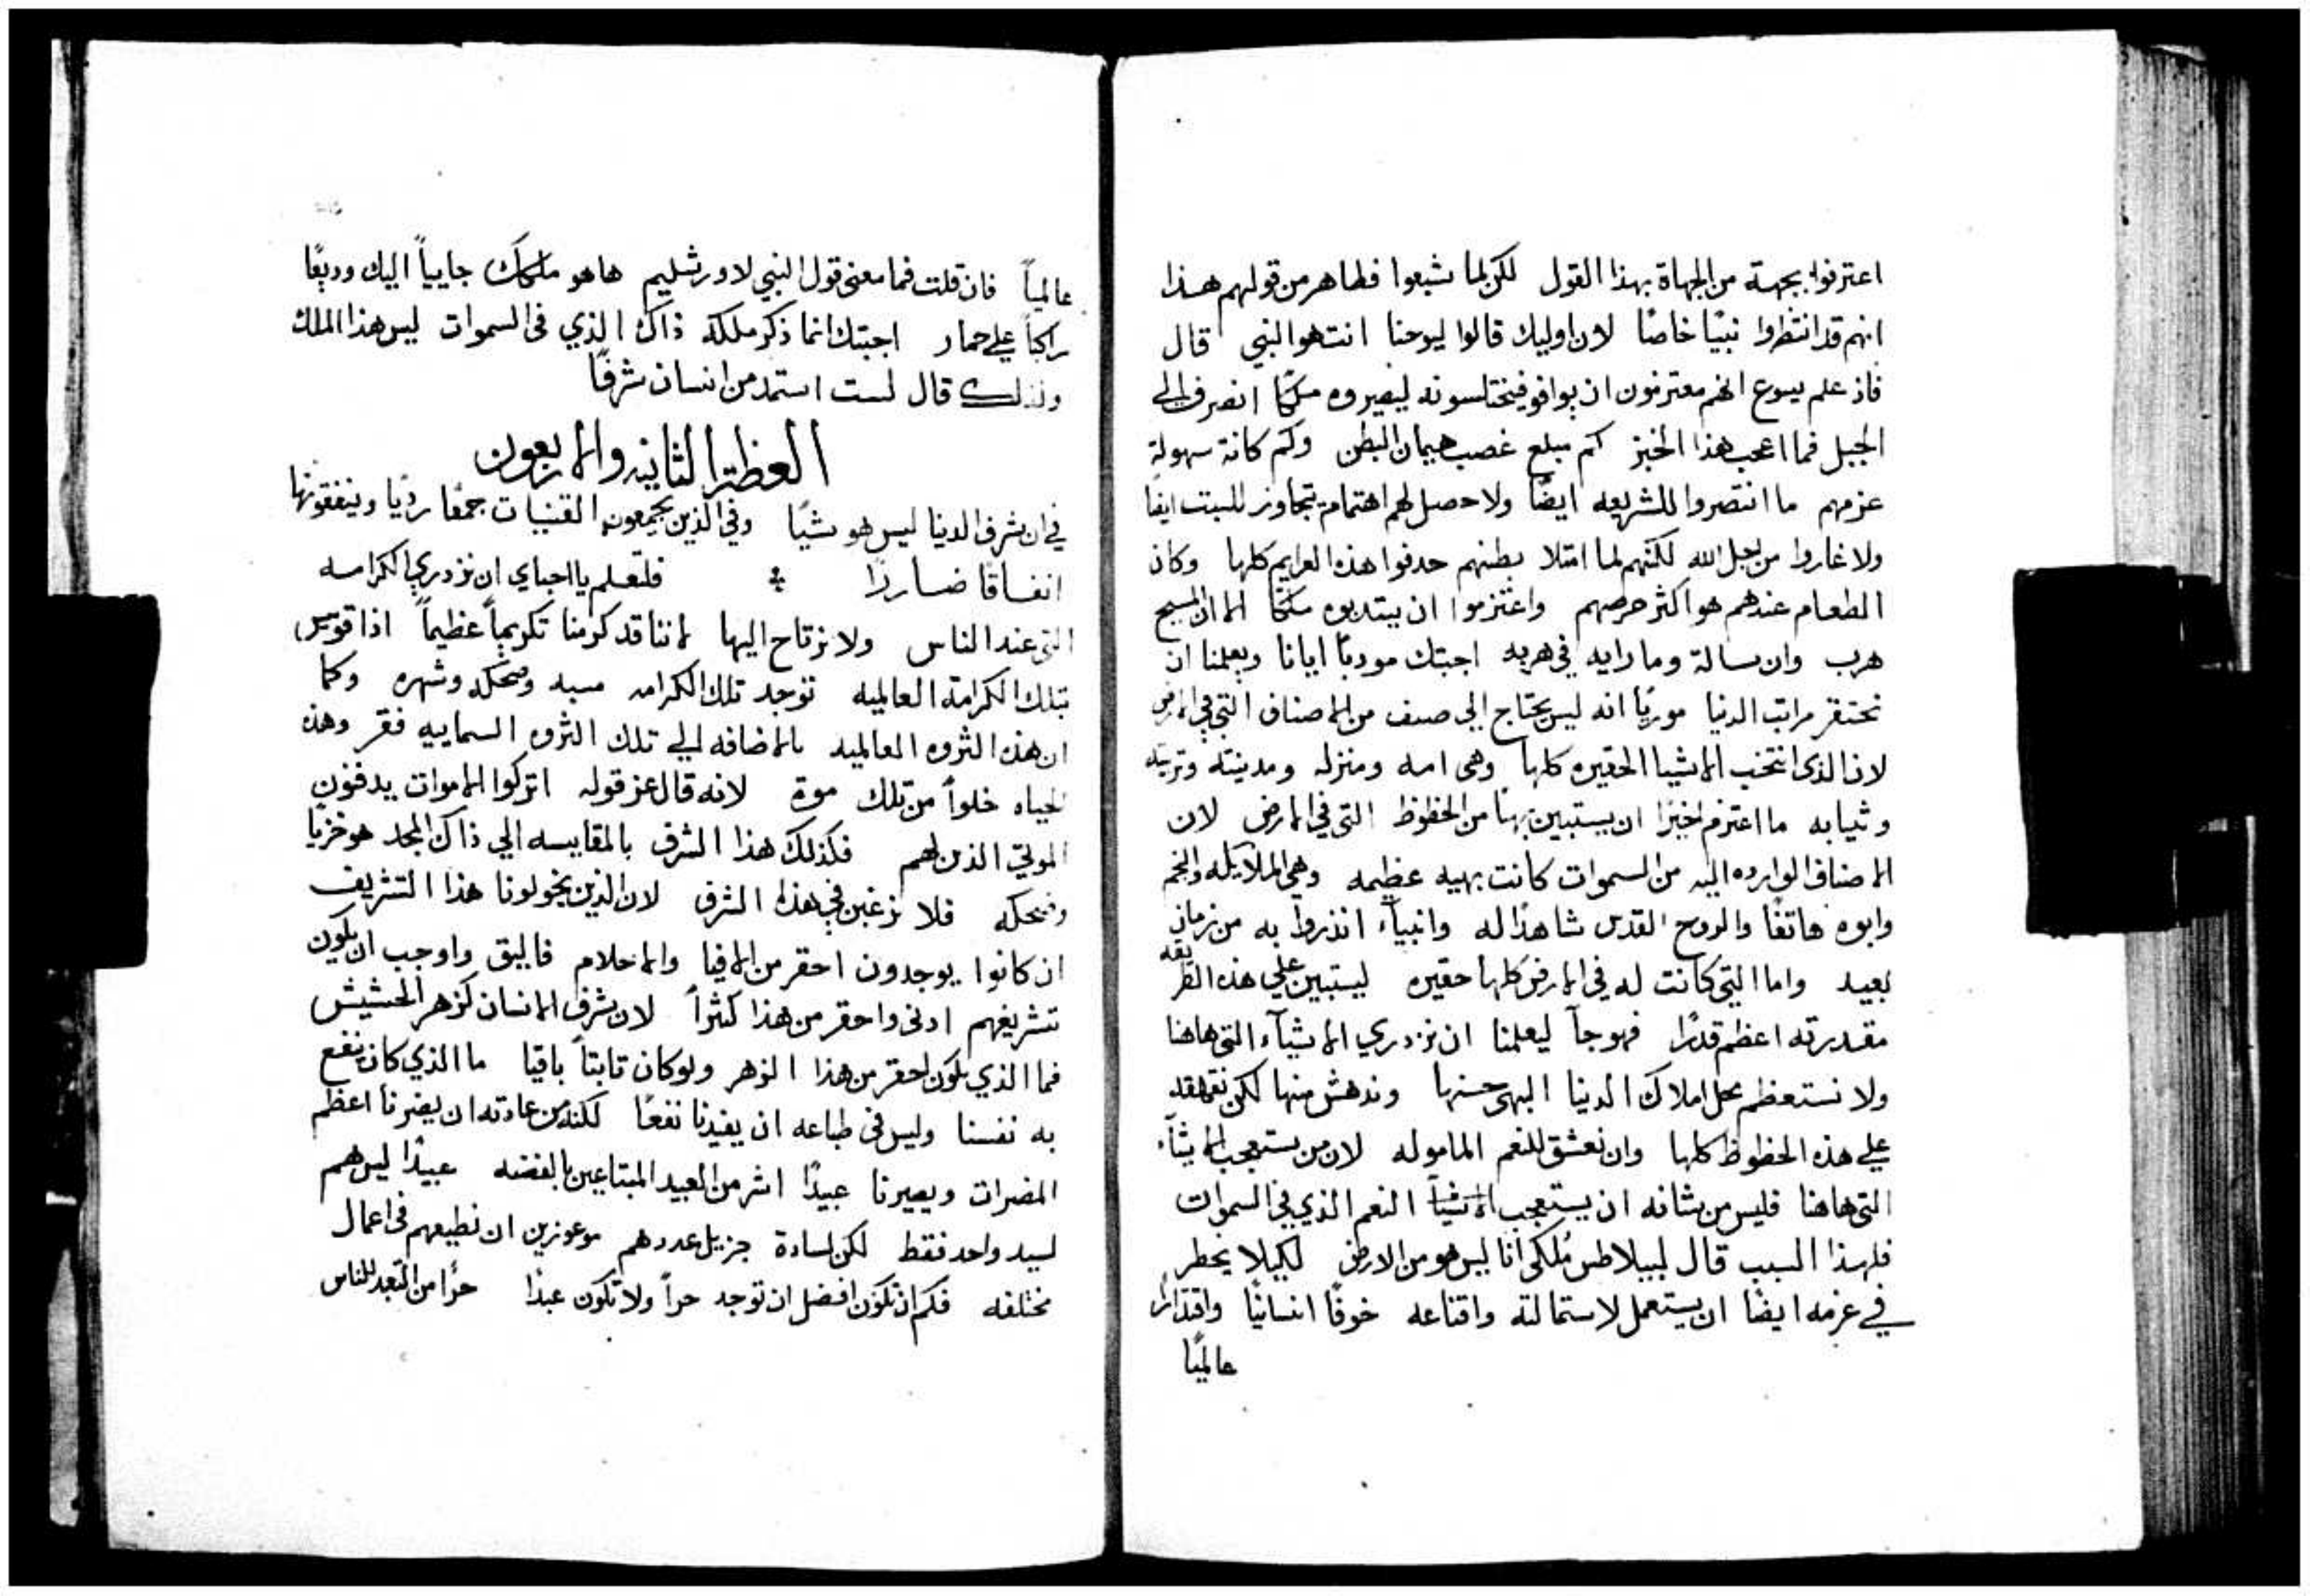 اعترفوا بجهة من الجهاة بهذا القول لكن لما شبعوا فظاهر من قولهم هذا
انهم قد انتظروا نبيًا خاصًا لان اوليك قالوا ليوحنا انت هو النبي قال
فاذ علم يسوع انهم معتزمون ان يوافو فيختلسونه ليصيروه ملكًا انصرف الي
الجبل فما اعجب هذا الخبز كم مبلع غصب هيمان البطن وكم كانة سهولة
عزمهم ما انتصروا للشريعه ايضًا ولا حصل لهم اهتمام بتجاوز للسبت ايضًا
ولا غاروا من اجل الله لكنهم لما امتلا بطنهم حدفوا هذه العزايم كلها وكان
الطعام عندهم هو اكثر حرصهم واعتزموا ان يبتدبوه ملكًا الا ان المسيح
هرب وان سالة وما رايه في هربه اجبتك مودبًا ايانا ويعلمنا ان
نحتقر مراتب الدنيا موريًا انه ليس يحتاج الي صنف من الاصناف التي في الارض
لان الذى انتخب الاشيا الحقيره كلها وهى امه ومنزله ومدينته وتربيته
وثيابه ما اعتزم اخيرًا ان يستبين بهيًا من الحظوظ التى في الارض لان
الاصناف الوارده اليه من السموات كانت بهيه عظيمه وهي الملايكه والنجم
وابوه هاتفًا والروح القدس شاهدًا له وانبياء انذروا به من زمان
بعيد واما التي كانت له في الارض كلها حقيره ليستبين علي هذه الطريقه
مقدرته اعظم قدرًا فهو جآ ليعلمنا ان نزدري الاشيآء التى هاهنا
ولا نستعظم محل املاك الدنيا البهى حسنها وندهش منها لكن نقهقه
علي هذه الحظوظ كلها وان نعشق للنعم الماموله لان من يستعجب الاشيآء
التى هاهنا فليس من شانه ان يستعجب الاشيآ النعم الذي في السموات
فلهذا السبب قال لبيلاطس مُلكى انا ليس هو من الارض لكيلا يخطر
في عزمه ايضًا ان يستعمل لاستمالته واقناعه خوفًا انسانيًا واقتدارًا
عالميًا
عالميًا فان قلت فما معنى قول النبي لاورشليم هاهو ملكك جايياً اليك وديعًا
راكبًا علي حمار اجبتك انما ذكر ملكه ذاك الذي فى السموات ليس هذا الملك
ولذلك قال لست استمد من انسان شرفًا
العظة الثانيه والاربعون
في ان شرف الدنيا ليس هو شيًا وفي الذين يجمعون القنيات جمعًا رديًا وينفقونها
انفاقًا ضاررًا فلنعلم يا احباي ان نزدري الكرامه
التى عند الناس ولا نرتاح اليها لاننا قد كرمنا تكريماً عظيماً اذا قويس
بتلك الكرامة العالميه توجد تلك الكرامه مسبه وضحكه وشهره وكما
ان هذه الثروه العالميه بالاضافه الي تلك الثروه السماييه فقر وهذه
الحياه خلواً من تلك موة لانه قال عز قوله اتركوا الاموات يدفنون
الموتي الذين لهم فكذلك هذا الشرف بالمقايسه الي ذاك المجد هو خزيًا
وضحكه فلا نرغبن في هذا الشرف لان الذين يخولونا هذا التشريف
ان كانوا يوجدون احقر من الافيا والاحلام فاليق واوجب ان يكون
تشريفهم ادنى واحقر من هذا كثراً لان شرف الانسان كزهر الحشيش
فما الذي يكون احقر من هذا الزهر ولو كان ثابتاً باقيا ما الذي كان نفع
به نفسنا وليس فى طباعه ان يفيدنا نفعًا لكنه من عادته ان يضرنا اعظم
المضرات ويصيرنا عبيدًا اشر من العبيد المبتاعين بالفضه عبيدًا ليس هم
لسيد واحد فقط لكن لسادة جزيل عددهم موعوزين ان نطيعهم فى اعمال
مختلفه فكم ان تكون افضل ان توجد حراً ولا تكون عبدًا حرًا من التعبد للناس